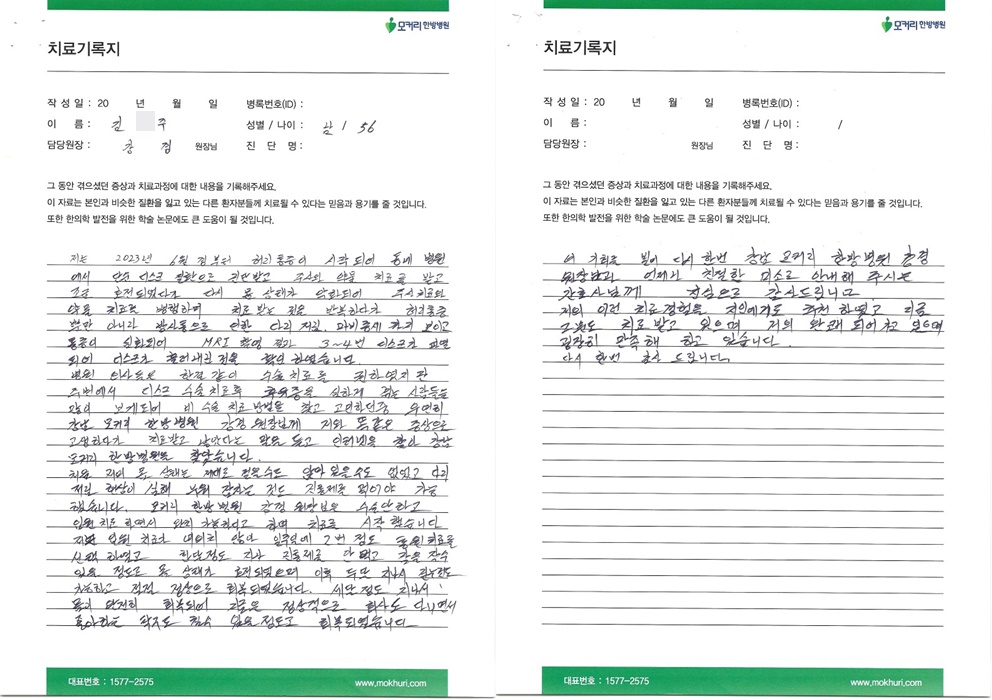 모커리한방병원
치료기록지
작 성 일 : 20 년 월 일 병록번호(ID) :
이 름 : 김 주 성별 / 나이 : 남 / 56
담당원장 : 강 경 원장님 진 단 명 :
그 동안 겪으셨던 증상과 치료과정에 대한 내용을 기록해주세요.
이 자료는 본인과 비슷한 질환을 앓고 있는 다른 환자분들께 치료될 수 있다는 믿음과 용기를 줄 것입니다.
또한 한의학 발전을 위한 학술 논문에도 큰 도움이 될 것입니다.
저는 2023년 6월 경부터 허리통증이 시작되어 동네 병원
에서 단순 디스크 질환으로 진단받고 주사와 약물 치료를 받고
조금 호전되었다가 다시 몸 상태가 악화되어 주사치료와
약물 치료로 병행하며 치료 받는 것을 반복하다가 허리통증
뿐만 아니라 방사통으로 인한 다리 저림, 마비증세 까지 보이고
통증이 심화되어 MRI 촬영 결과 3~4번 디스크가 파열
되어 디스크가 흘러내린 것을 확인 하였습니다.
병원 의사들은 한결 같이 수술치료를 권하였지만
주변에서 디스크 수술 치료후 후유증을 심하게 겪는 사람들을
많이 보게되어 비 수술 치료 방법을 찾고 고민하던중 우연히
강남 모커리 한방병원 강경 원장님께 저와 똑같은 증상으로
고생하다가 치료받고 나았다는 말을 듣고 인터넷을 찾아 강남
모커리 한방병원을 찾았습니다.
처음 저의 몸 상태는 제대로 걸을수도 앉아 있을수도 없었고 다리
저림 현상이 심해 누워 잠자는 것도 진통제를 먹어야 가능
했습니다. 모커리 한방병원 강경 원장님은 수술안하고
입원치료 하면서 완치 가능하다고 하며 치료를 시작했습니다
저는 입원 치료가 여의치 않아 일주일에 2번 정도 통원치료를
선택 하였고 한달정도 지나 진통제를 안먹고 잠을 잘수
있을 정도로 몸 상태가 호전되었으며 이후 두달 지나서 걷는것도
가능하고 점점 정상으로 회복되었습니다. 세달 정도 지나서
몸이 완전히 회복되어 지금은 정상적으로 회사도 다니면서
좋아하는 박자도 칠수 있을 정도로 회복되었습니다
대표번호 : 1577-2575 www.mokhuri.com
모커리한방병원
치료기록지
작 성 일 : 20 년 월 일 병록번호(ID) :
이 름 : 성별 / 나이 : /
담당원장 : 원장님 진 단 명 :
그 동안 겪으셨던 증상과 치료과정에 대한 내용을 기록해주세요.
이 자료는 본인과 비슷한 질환을 앓고 있는 다른 환자분들께 치료될 수 있다는 믿음과 용기를 줄 것입니다.
또한 한의학 발전을 위한 학술 논문에도 큰 도움이 될 것입니다.
이 기회를 빌어 다시 한번 강남 모커리 한방병원 강경
원장님과 언제나 친절한 미소로 안내해 주시는
간호사님께 진심으로 감사드립니다.
저의 이런 치료경험을 지인에게도 추천 하였고 지금
그분도 치료 받고 있으며 거의 완쾌 되어가고 있으며
굉장히 만족해 하고 있습니다.
다시 한번 감사 드립니다.
대표번호 : 1577-2575 www.mokhuri.com